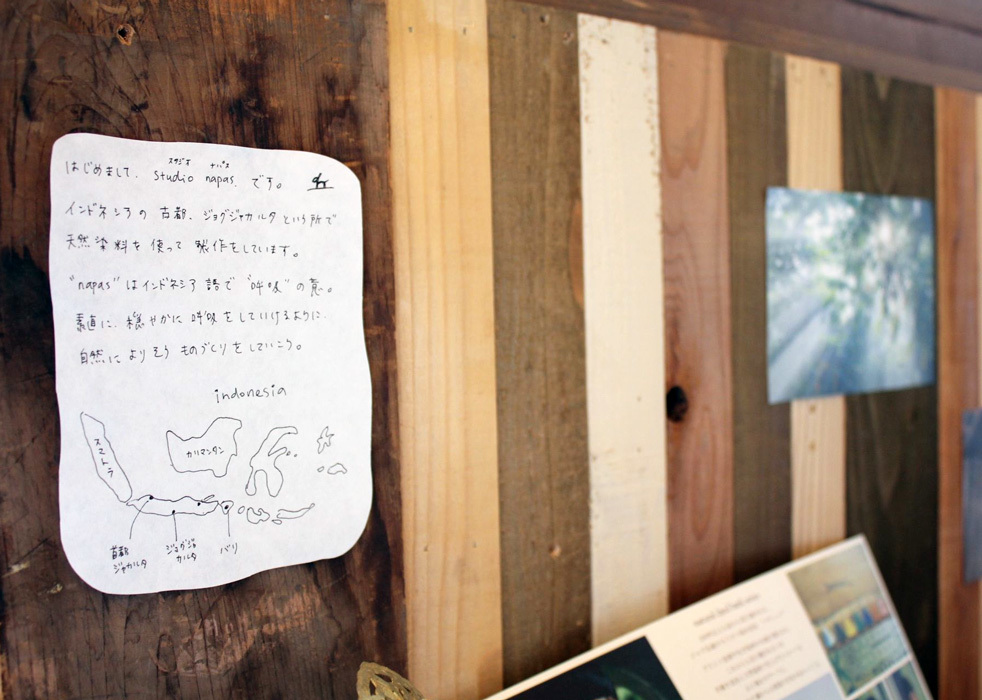 スタジオ ナパス
はじめまして、studio napas. です。
インドネシアの 古都、ジョグジャカルタ という所で
天然染料を 使って 製作をしています。
"napas" は インドネシア 語で "呼吸" の 意。
素直に、穏やかに 呼吸 を していけるように、
自然に よりそう ものづくり を していこう。
indonesia
スマトラ
カリマンタン
首都
ジャカルタ
ジョグジャ
カルタ
バリ